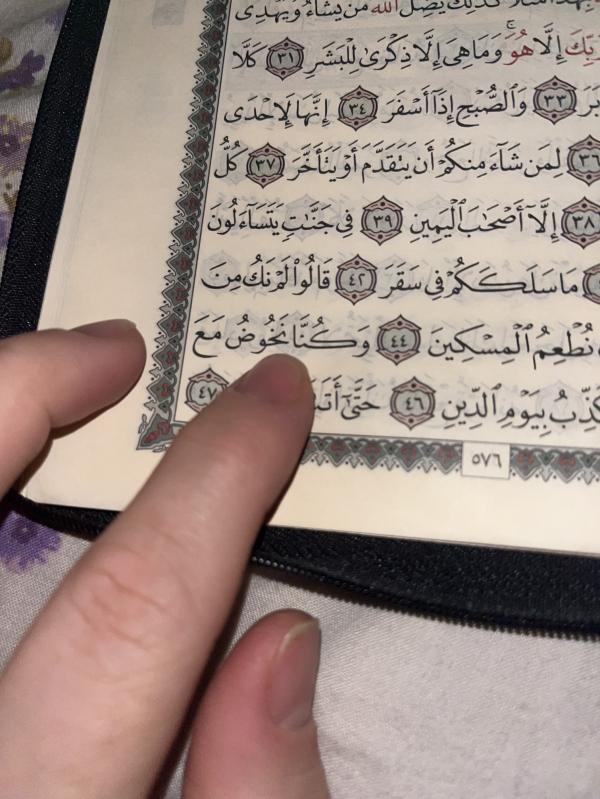 كَذَٰلِكَ يُضِلُّ ٱللَّهُ مَن يَشَآءُ وَيَهْدِى
رَبِّكَ إِلَّا هُوَ ۚ وَمَا هِىَ إِلَّا ذِكْرَىٰ لِلْبَشَرِ ٣١ كَلَّا
بَرَ ٣٣ وَٱلصُّبْحِ إِذَآ أَسْفَرَ ٣٤ إِنَّهَا لَإِحْدَى
٣٦ لِمَن شَآءَ مِنكُمْ أَن يَتَقَدَّمَ أَوْ يَتَأَخَّرَ ٣٧ كُلُّ
٣٨ إِلَّآ أَصْحَٰبَ ٱلْيَمِينِ ٣٩ فِى جَنَّٰتٍ يَتَسَآءَلُونَ
مَا سَلَكَكُمْ فِى سَقَرَ ٤٢ قَالُوا۟ لَمْ نَكُ مِنَ
نُطْعِمُ ٱلْمِسْكِينَ ٤٤ وَكُنَّا نَخُوضُ مَعَ
كَذِّبُ بِيَوْمِ ٱلدِّينِ ٤٦ حَتَّىٰٓ ٤٧
٥٧٦